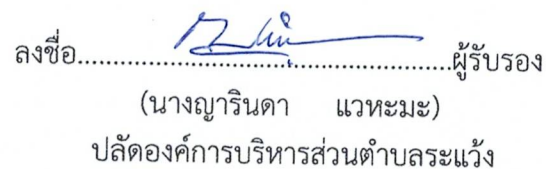 ลงชื่อ........................................................ผู้รับรอง
(นางญารินดา แวหะมะ)
ปลัดองค์การบริหารส่วนตำบลระแว้ง